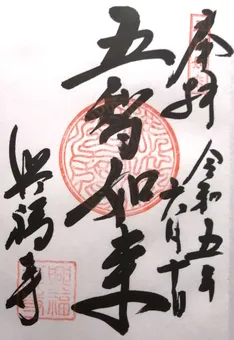 奉拝
令和五年
六月十日
五智如来
興福寺